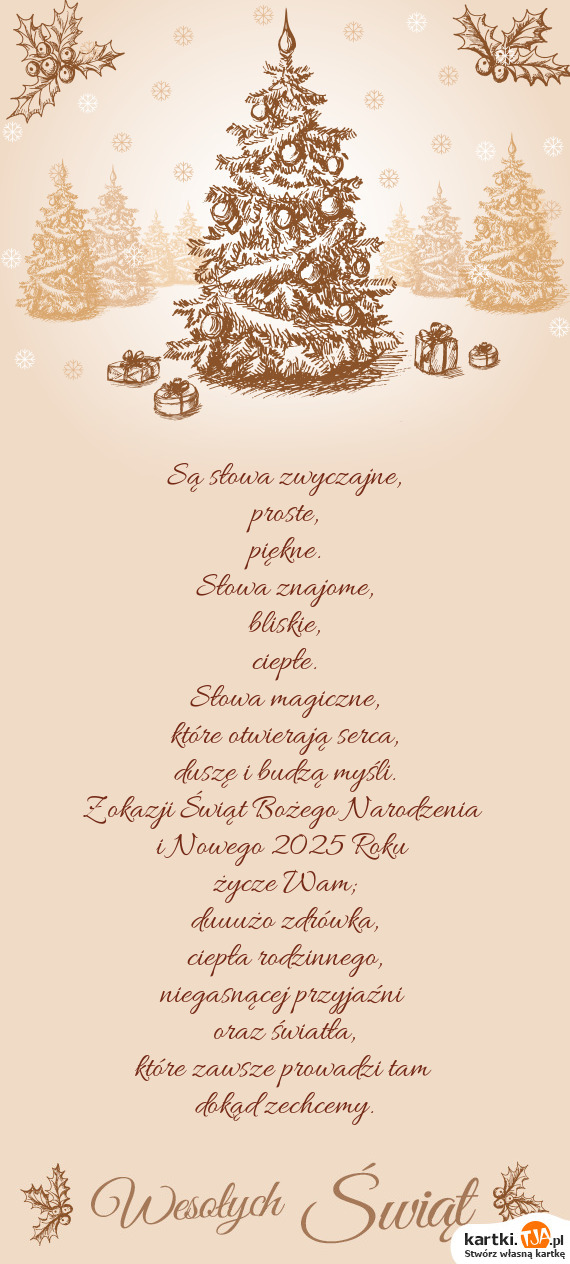 Są słowa zwyczajne,
proste,
piękne.
Słowa znajome,
bliskie,
ciepłe.
Słowa magiczne,
które otwierają serca,
duszę i budzą myśli.
Z okazji Świąt Bożego Narodzenia
i Nowego 2025 Roku
życze Wam;
duuużo zdrówka,
ciepła rodzinnego,
niegasnącej przyjaźni
oraz światła,
które zawsze prowadzi tam
dokąd zechcemy.
Wesołych Świąt
kartki.TJA.pl
Stwórz własną kartkę